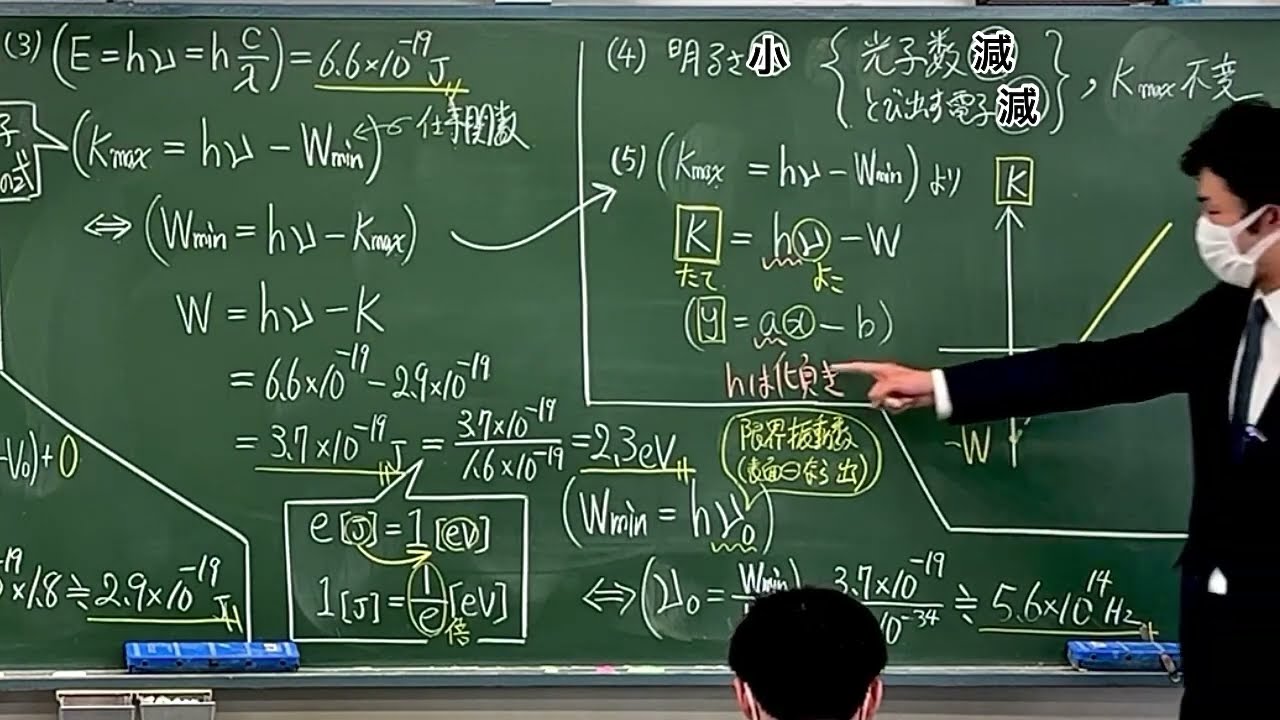 (3) (E = hν = h c/λ) = 6.6×10⁻¹⁹ J
仕事関数
子
の式
(Kmax = hν − Wmin)
⇔ (Wmin = hν − Kmax)
W = hν − K
= 6.6×10⁻¹⁹ − 2.9×10⁻¹⁹
= 3.7×10⁻¹⁹ J = 3.7×10⁻¹⁹/1.6×10⁻¹⁹ = 2.3eV
−V₀)+0
×1.8≒2.9×10⁻¹⁹ J
e[J] = 1[eV]
1[J] = 1/e[eV]
倍
(4) 明るさ小 { 光子数 減
とび出す電子 減 }, Kmax 不変
(5) (Kmax = hν − Wmin) より
K = hν − W
たて よこ
(y = ax − b)
hは傾き
K
−W
限界振動数
(表面⊖なら出)
(Wmin = hν₀)
⇔ (ν₀ = Wmin 3.7×10⁻¹⁹/10⁻³⁴ ≒ 5.6×10¹⁴ Hz